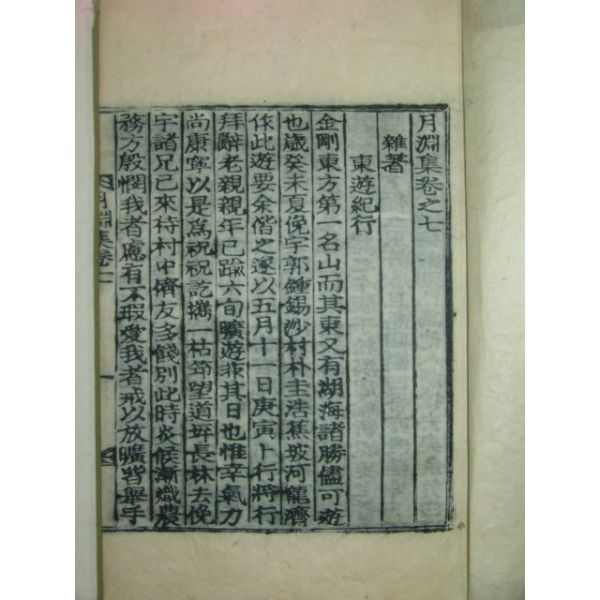 月淵集卷之七
雜著
東遊紀行
金剛東方第一名山而其東又有湖海諸勝儘可遊
也歲癸未夏俛宇郭鍾錫沙村朴圭浩蕉坡河龍濟
係此遊要余偕之遂以五月十一日庚寅卜行將行
拜辭老親親年已踰六旬曠遊非其日也惟幸氣力
尚康寧以是爲祝祝訖携一枯笻望道坪長林去俛
宇諸兄已來待村中儕友多餞別此時炎候漸熾農
務方殷憫我者慮有不瑕愛我者戒以放曠皆舉手
月淵集卷七